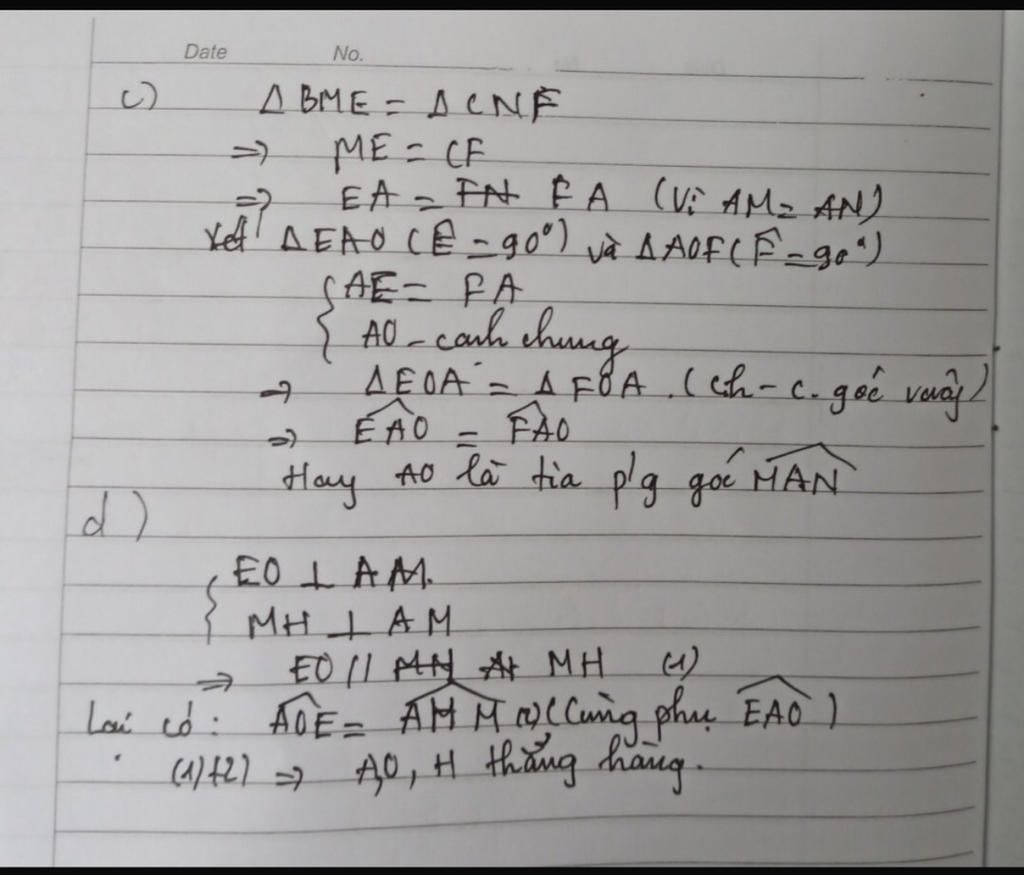 Date No.
c) Δ BME = Δ CNF
=> ME = CF
=> EA = FN FA (Vì AM = AN)
Xét ΔEAO (Ê = 90°) và ΔAOF (F̂ = 90°)
{ AE = FA
AO - cạnh chung
=> ΔEOA = ΔFOA. (ch - c. góc vuông)
=> EAO = FAO
Hay AO là tia p/g góc MAN
d)
{ EO ⊥ AM.
MH ⊥ AM
=> EO // MN A MH (1)
Lại có: AOE = AHM (2) (Cùng phụ EAO)
(1)(2) => A, O, H thẳng hàng.